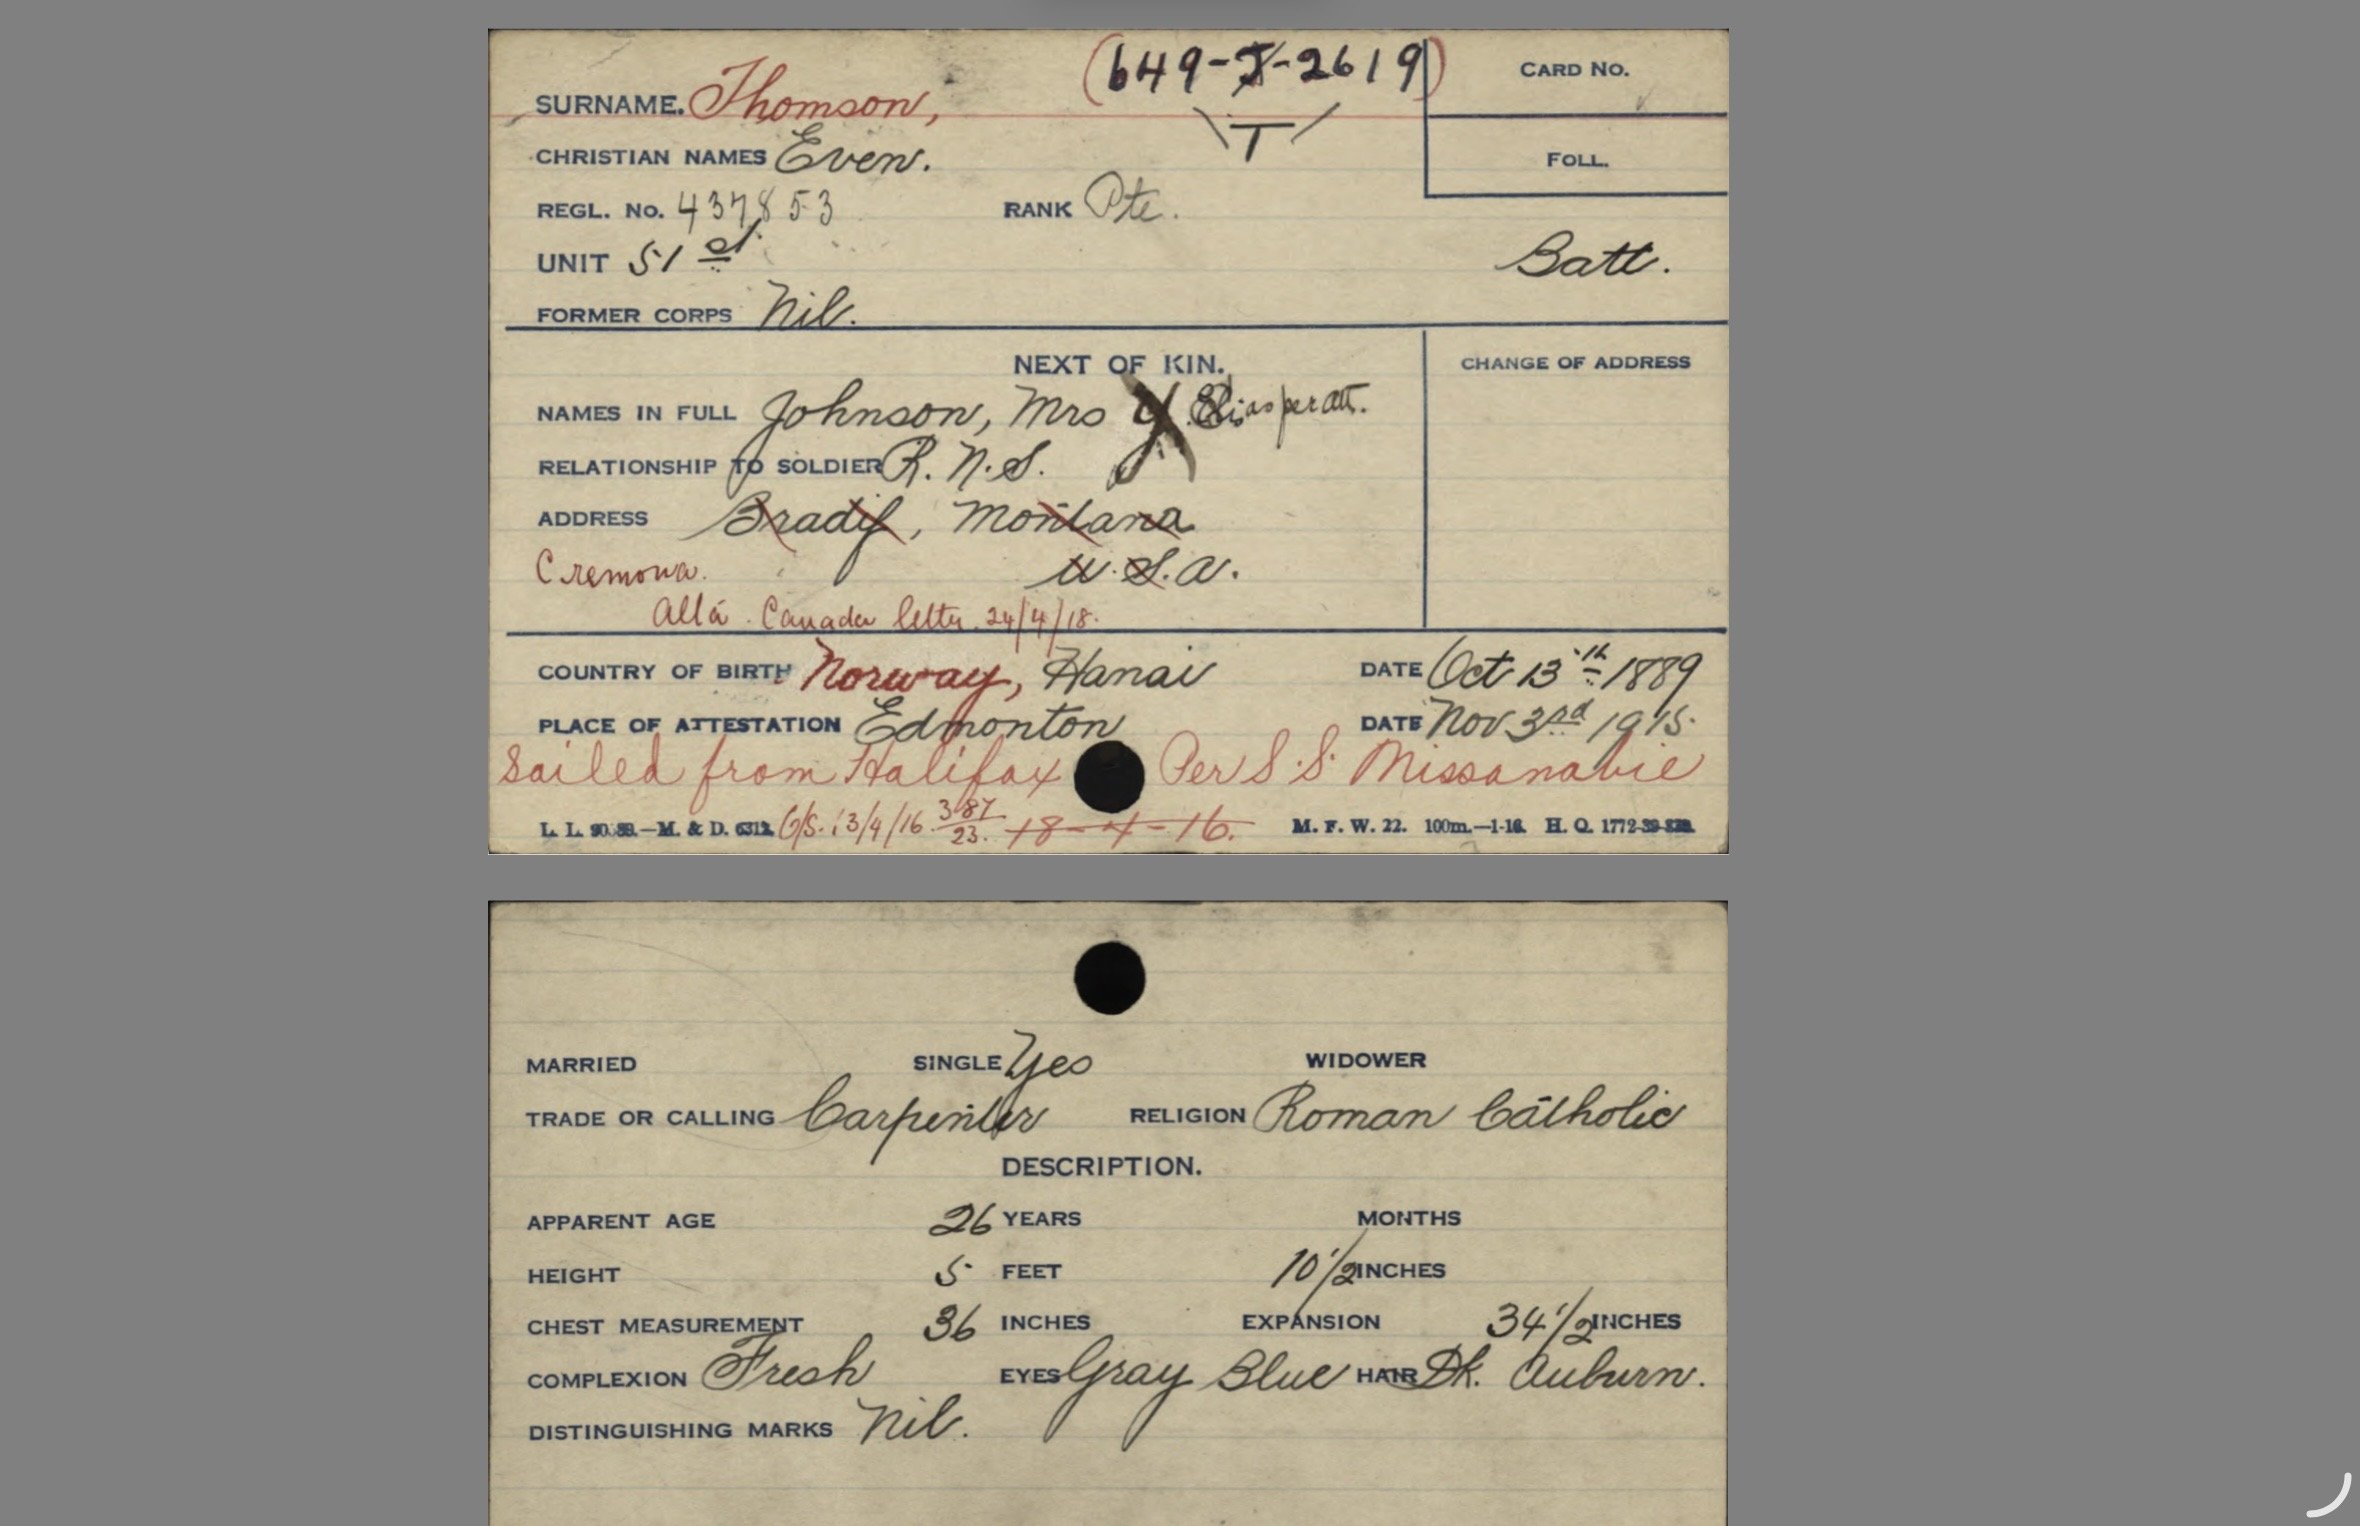 (649-T-2619)
T
CARD No.
SURNAME. Thomson,
CHRISTIAN NAMES Even.
FOLL.
REGL. No. 437853 RANK Pte.
UNIT 51st Batt.
FORMER CORPS Nil.
NEXT OF KIN.
CHANGE OF ADDRESS
NAMES IN FULL Johnson, Mrs as per att.
RELATIONSHIP TO SOLDIER R. N. S.
ADDRESS Brady, Montana
Cremona. U. S. A.
Alta. Canada letter 24/4/18.
COUNTRY OF BIRTH Norway, Hanai DATE Oct 13th 1889
PLACE OF ATTESTATION Edmonton DATE Nov 3rd 1915
Sailed from Halifax Per S. S. Missanabie
L. L. —M. & D. 6312. O/S. 13/4/16 387/23. 18-4-16. M. F. W. 22. 100m.—1-16. H. Q. 1772-39-
MARRIED SINGLE Yes WIDOWER
TRADE OR CALLING Carpenter RELIGION Roman Catholic
DESCRIPTION.
APPARENT AGE 26 YEARS MONTHS
HEIGHT 5 FEET 10 1/2 INCHES
CHEST MEASUREMENT 36 INCHES EXPANSION 34 1/2 INCHES
COMPLEXION Fresh EYES Gray Blue HAIR Dk. Auburn.
DISTINGUISHING MARKS Nil.